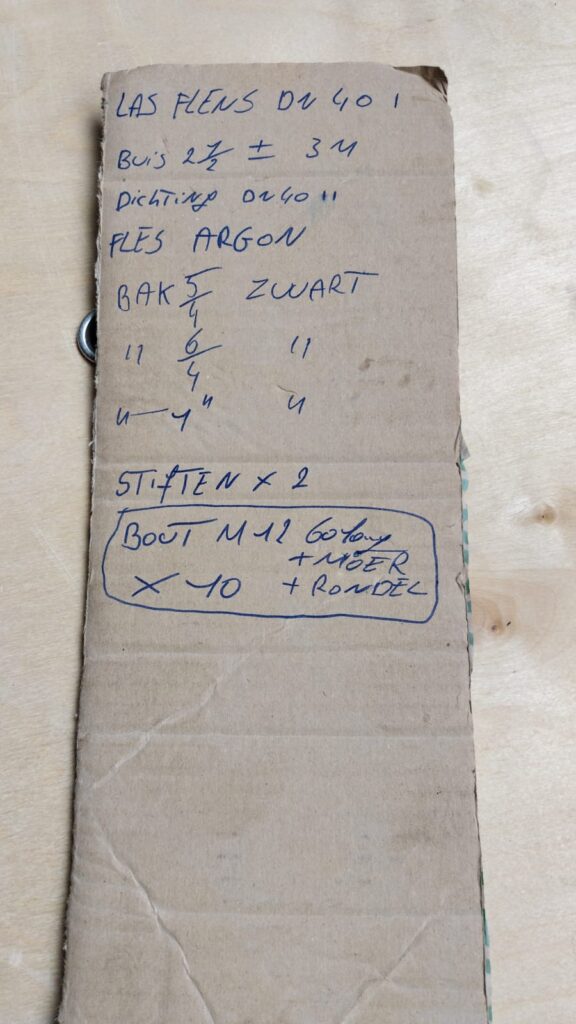 LAS FLENS DN 40 I
BUIS 2 1/2 ± 3 M
DICHTING DN 40 II
FLES ARGON
BAK 5/4 ZWART
" 6/4 "
" — 1" "
STIFTEN X 2
BOUT M12 60 lang
+ MOER
X 10 + RONDEL